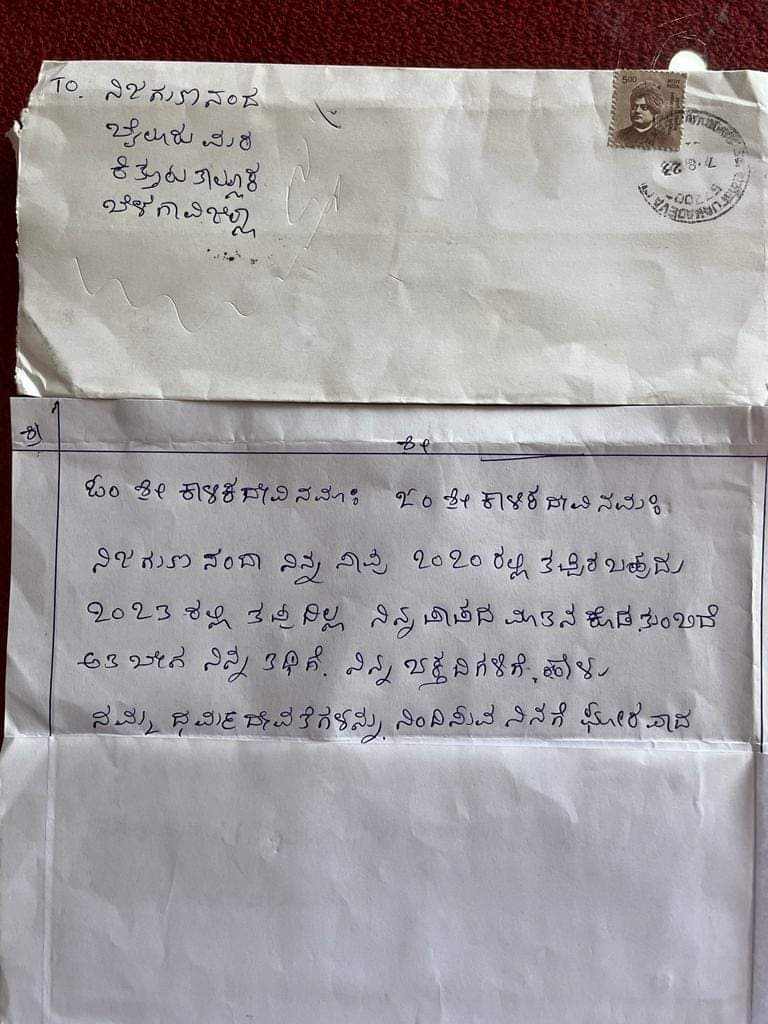 TO. ನಿಜಗುಣಾನಂದ
ಬೈಲೂರು ಮಠ
ಕಿತ್ತೂರು ತಾಲ್ಲೂಕ
ಬೆಳಗಾವಿ ಜಿಲ್ಲಾ
5.00
7.8.23
ಶ್ರೀ
ಓಂ ಶ್ರೀ ಕಾಳಿಕದೇವಿ ನಮಃ ಓಂ ಶ್ರೀ ಕಾಳಿಕದೇವಿ ನಮಃ
ನಿಜಗುಣಾನಂದಾ ನಿನ್ನ ಸಾವು 2020 ರಲ್ಲಿ ತಪ್ಪಿರಬಹುದು
2023 ರಲ್ಲಿ ತಪ್ಪದಿಲ್ಲ ನಿನ್ನ ಪಾಪದ ಕೊಡ ತುಂಬಿದೆ
ಅತಿ ಬೇಗ ನಿನ್ನ ತಿಥಿಗೆ. ನಿನ್ನ ಭಕ್ತದಿಗಳಿಗೆ ಹೇಳು
ನಮ್ಮ ಧರ್ಮ ದೇವತೆಗಳನ್ನು ನಿಂದಿಸುವ ನಿನಗೆ ಘೋರವಾದ